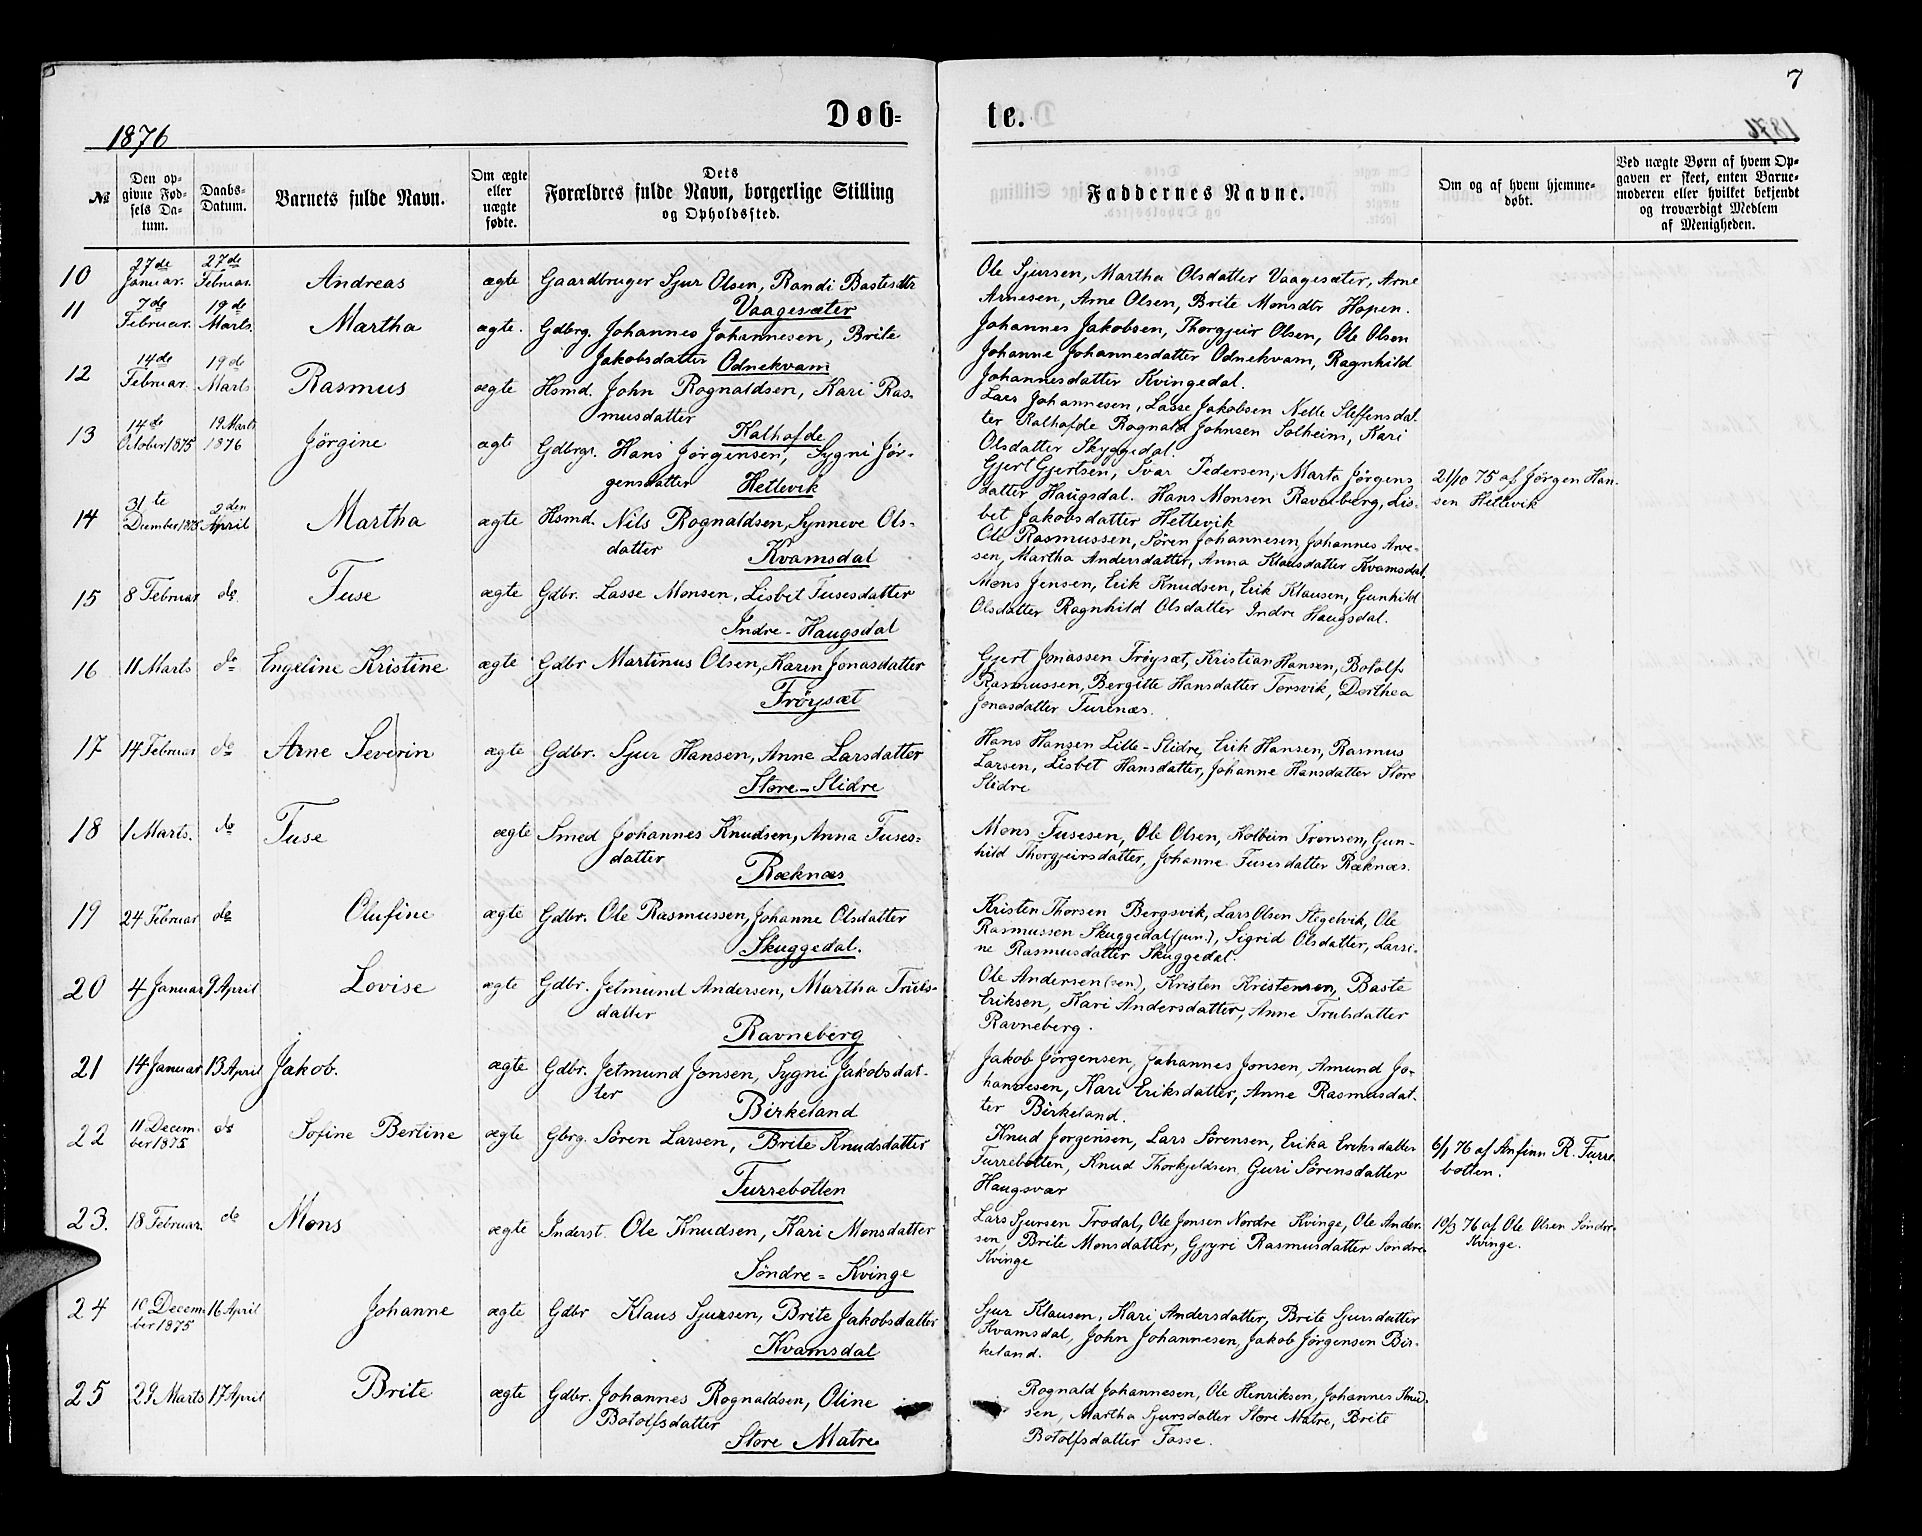 7
Døb=
te.
1876
№
Den op-
givne Fød-
sels Da-
tum.
Daabs-
Datum.
Barnets fulde Navn.
Om ægte
eller
uægte
fødte.
Dets
Forældres fulde Navn, borgerlige Stilling
og Opholdssted.
Faddernes Navne.
Om og af hvem hjemme-
døbt.
Ved uægte Børn af hvem Op-
gaven er skeet, enten Barne-
moderen eller hvilket bekjendt
og troværdigt Medlem
af Menigheden.
10
27de
Januar.
27de
Februar.
Andreas
ægte
Gaardbruger Sjur Olsen, Randi Bastesdtr
Vaagesæter
Ole Sjursen, Martha Olsdatter Vaagesæter, Arne
Arnesen, Arne Olsen, Brite Monsdtr Hopen.
11
7de
Februar.
19de
Marts.
Martha
ægte.
Gdbrg. Johannes Johannesen, Brite
Jakobsdatter Odnekvam
Johannes Jakobsen, Thorgjeir Olsen, Ole Olsen
Johanne Johannesdatter Odnekvam, Ragnhild
Johannesdatter Kvingedal.
12
14de
Februar.
19de
Marts
Rasmus
ægte
Hsmd. John Rognaldsen, Kari Ras-
musdatter
Kalhofde
Lars Johannesen, Lasse Jakobsen Nelle Steffensdat-
ter Kalhofde Rognald Johnsen Solheim, Kari
Olsdatter Skyggedal.
13
14de
October 1875
19 Marts
1876
Jørgine
ægt
Gdbrgr. Hans Jørgensen, Sygni Jør-
gensdatter Hettevik
Gjert Gjertsen, Ivar Pedersen, Marta Jørgens
datter Haugsdal. Hans Monsen Ravneberg, Lis-
bet Jakobsdatter Hettevik
21/10 75 af Jørgen Han-
sen Hettevik
14
31te
December 1875
2den
April
Martha
ægte
Hsmd. Nils Rognaldsen, Synneve Ols-
datter Kvamsdal
Ole Rasmussen, Sören Johannesen, Johannes Arne-
sen, Martha Andersdatter, Anna Klausdatter Kvamsdal.
15
8 Februar
do
Tuse
ægte
Gdbr. Lasse Monsen, Lisbet Tusesdatter
Indre-Haugsdal
Mons Jensen, Erik Knudsen, Erik Klausen, Gunhild
Olsdatter Ragnhild Olsdatter Indre Haugsdal.
16
11 Marts
do
Engeline Kristine
ægte
Gdbr Martinus Olsen, Karen Jonasdatter
Frøysæt
Gjert Jonassen Frøysæt, Kristian Hansen, Botolf
Rasmussen, Bergitte Hansdatter Torsvik, Dorthea
Jonasdatter Furenæs.
17
14 Februar
do
Arne Severin
ægte
Gdbr. Sjur Hansen, Anne Larsdatter
Store-Slidre
Hans Hansen Lille-Slidre, Erik Hansen, Rasmus
Larsen, Lisbet Hansdatter, Johanne Hansdatter Store
Slidre
18
1 Marts.
do
Tuse
ægte
Smed Johannes Knudsen, Anna Tuses-
datter
Ræknæs
Mons Tusesen, Ole Olsen, Kolbein Tronsen, Gun-
hild Thorgjeirsdatter, Johanne Tusesdatter Ræknæs.
19
24 Februar
do
Olufine
ægte
Gdbr. Ole Rasmussen, Johanne Olsdatter
Skuggedal.
Kristen Thorsen Bergsvik, Lars Olsen Stigelvik, Ole
Rasmussen Skuggedal (jun.), Sigrid Olsdatter, Larsi-
ne Rasmusdatter Skuggedal.
20
4 Januar
9 April
Lovise
ægte
Gdbr. Jetmund Andersen, Martha Truls-
datter
Ravneberg
Ole Andersen (sen), Kristen Kristensen, Baste
Eriksen, Kari Andersdatter, Anne Trulsdatter
Ravneberg.
21
14 Januar
13 April
Jakob.
ægte
Gdbr. Jetmund Jonsen, Sygni Jakobsdat-
ter
Birkeland
Jakob Jörgensen, Johannes Jonsen, Amund Jo-
hannesen, Kari Eriksdatter, Anne Rasmusdat-
ter Birkeland.
22
11 Decem-
ber 1875
do
Sofine Bertine
ægte
Gbrg. Sören Larsen, Brite Knudsdatter
Furrebotten
Knud Jørgensen, Lars Sörensen, Erika Eriksdatter
Furrebotten, Knud Thorkjeldsen Guri Sörensdatter
Haugsvær
6/1 76 af Anfinn R. Furre-
botten.
23.
18 Februar.
do
Mons
ægte
Inderst. Ole Knudsen, Kari Monsdatter
Søndre=Kvinge
Lars Sjursen Trodal, Ole Jonsen Nordre Kvinge, Ole Ander-
sen, Brite Monsdatter, Gjyri Rasmusdatter Søndre
Kvinge
10/3 76 af Ole Olsen Sønder-
Kvinge.
24
10 Decem-
ber 1875
16 April
Johanne
ægte
Gdbr Klaus Sjursen, Brite Jakobsdatter
Kvamsdal
Sjur Klausen, Kari Andersdatter, Brite Sjursdatter
Kvamsdal, John Johannesen, Jakob Jørgensen Bir-
keland.
25
29 Marts
17 April
Brite
ægte
Gdbr. Johannes Rognaldsen, Oline
Botolfsdatter
Store Matre
Rognald Johannesen, Ole Henriksen, Johannes Knud-
sen, Martha Sjursdatter Store Matre, Brite
Botolfsdatter Fosse.